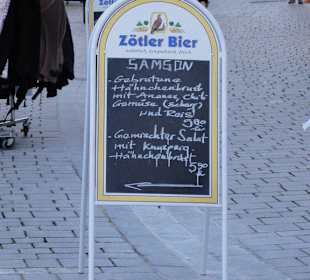 Zötler Bier
SAMSON
- Gebratene
Hähnchenbrust
mit Ananas, Chili
Gemüse (scharf)
und Reis
5,90
- Gemischter Salat
mit Knusprig.
Hähnchenbrust
5,90